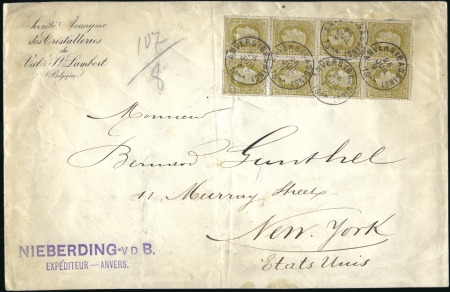 Société Anonyme
des Cristalleries
du
Val St Lambert
(Belgique)
107/8
Monsieur
Bernard Gunthel
11 Murray Street
New. York
Etats Unis
NIEBERDING-V D B.
EXPÉDITEUR — ANVERS.